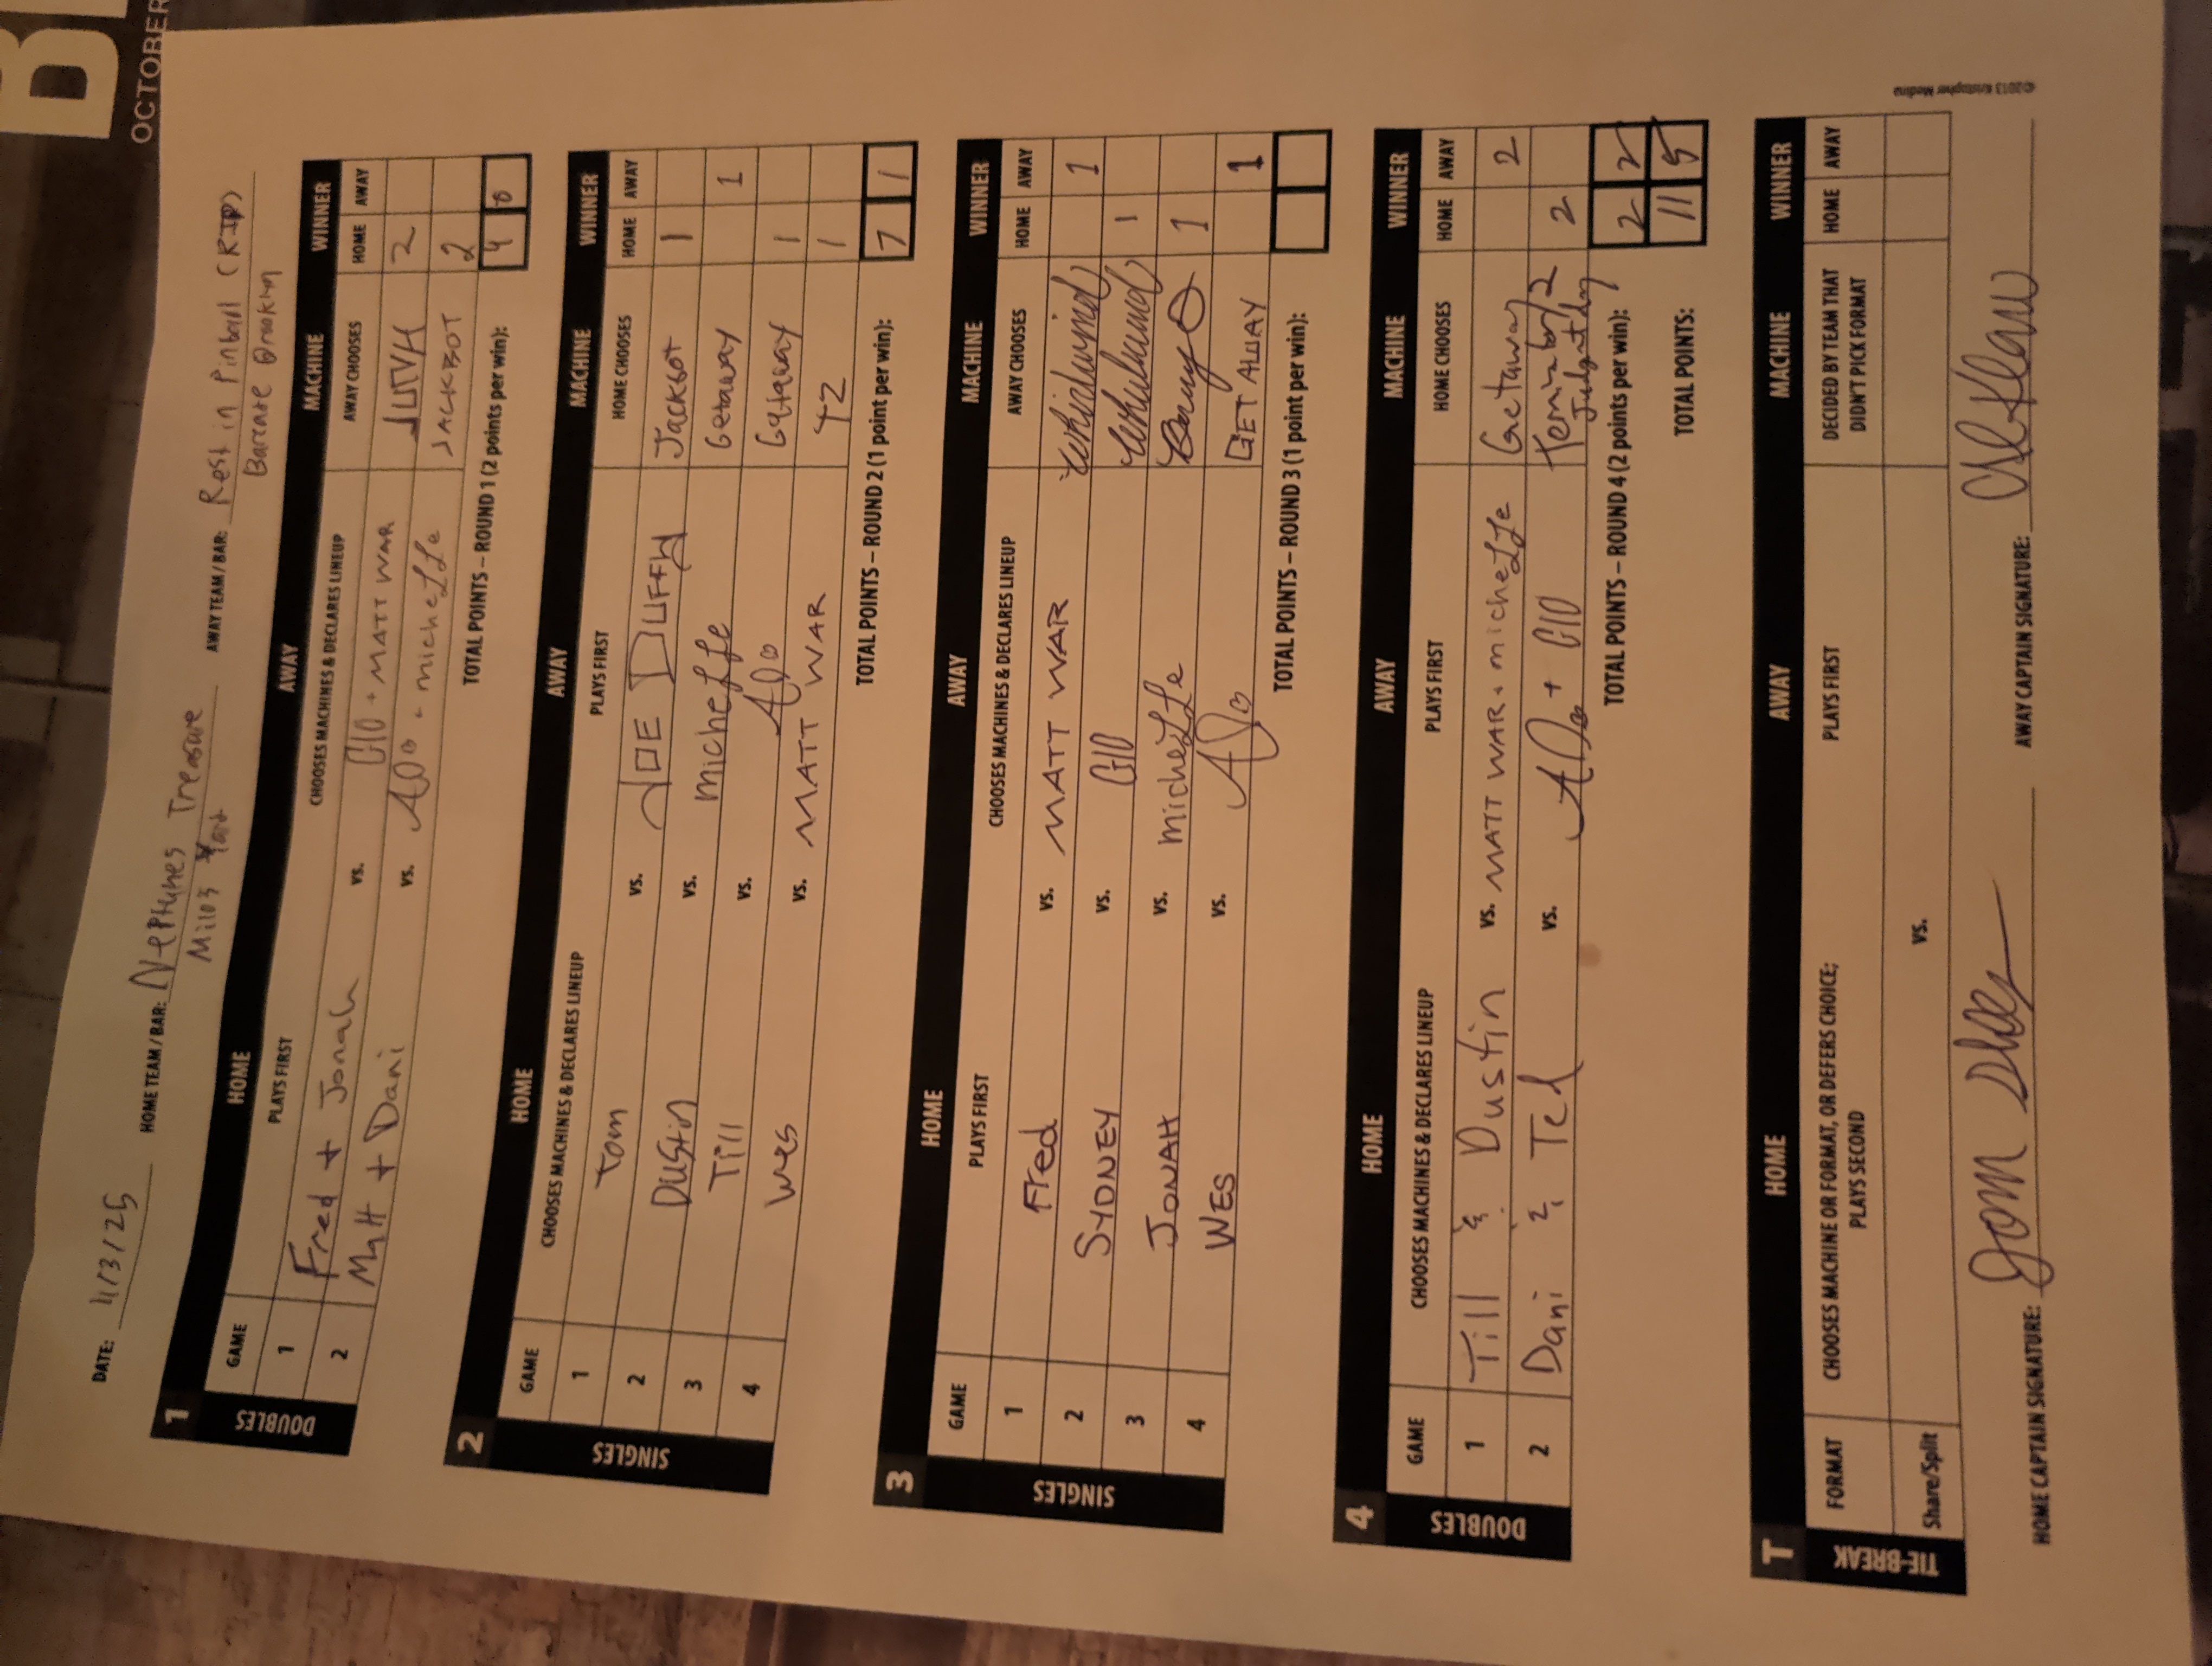 B
OCTOBER
DATE: 1/13/25 HOME TEAM/BAR: Neptunes Treasure AWAY TEAM/BAR: Rest in Pinball (RIP)
Milo's Yard Barcade Brooklyn
1 HOME AWAY MACHINE WINNER
GAME PLAYS FIRST CHOOSES MACHINES & DECLARES LINEUP AWAY CHOOSES HOME AWAY
DOUBLES
1 Fred + Jonah vs. GIO + MATT WAR 2
2 Matt + Dani vs. + micheLLe JACKBOT 2
TOTAL POINTS – ROUND 1 (2 points per win): 4 0
2 HOME AWAY MACHINE WINNER
GAME CHOOSES MACHINES & DECLARES LINEUP PLAYS FIRST HOME CHOOSES HOME AWAY
SINGLES
1 Tom vs. JOE DUFFY Jackbot 1
2 Dustin vs. micheLLe Getaway 1
3 Till vs. Getaway 1
4 Wes vs. MATT WAR TZ 1
TOTAL POINTS – ROUND 2 (1 point per win): 7 1
3 HOME AWAY MACHINE WINNER
GAME PLAYS FIRST CHOOSES MACHINES & DECLARES LINEUP AWAY CHOOSES HOME AWAY
SINGLES
1 Fred vs. MATT WAR Whirlwind 1
2 SYDNEY vs. GIO Whirlwind 1
3 JONAH vs. micheLLe 1
4 WES vs. GET AWAY 1
TOTAL POINTS – ROUND 3 (1 point per win):
4 HOME AWAY MACHINE WINNER
GAME CHOOSES MACHINES & DECLARES LINEUP PLAYS FIRST HOME CHOOSES HOME AWAY
DOUBLES
1 Till & Dustin vs. MATT WAR + micheLLe Getaway 2
2 Dani & Ted vs. + GIO Terminator 2 2
Judgment day
TOTAL POINTS – ROUND 4 (2 points per win): 2 2
TOTAL POINTS: 11 5
T HOME AWAY MACHINE WINNER
FORMAT CHOOSES MACHINE OR FORMAT, OR DEFERS CHOICE; PLAYS SECOND PLAYS FIRST DECIDED BY TEAM THAT DIDN'T PICK FORMAT HOME AWAY
TIE-BREAK
Share/Split vs.
HOME CAPTAIN SIGNATURE: AWAY CAPTAIN SIGNATURE:
©2013 Kristopher Medina